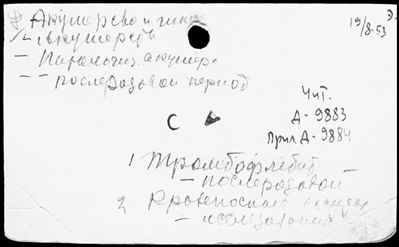 Акушерство и гинек
19/8-53
Акушерств
– Патология акушер.
– – послеродовой период
Чит.
Д-9883
С
Прил. Д-9884
1 Тромбофлебит
– послеродовой
2 Кровеносные сосуды
– исследования